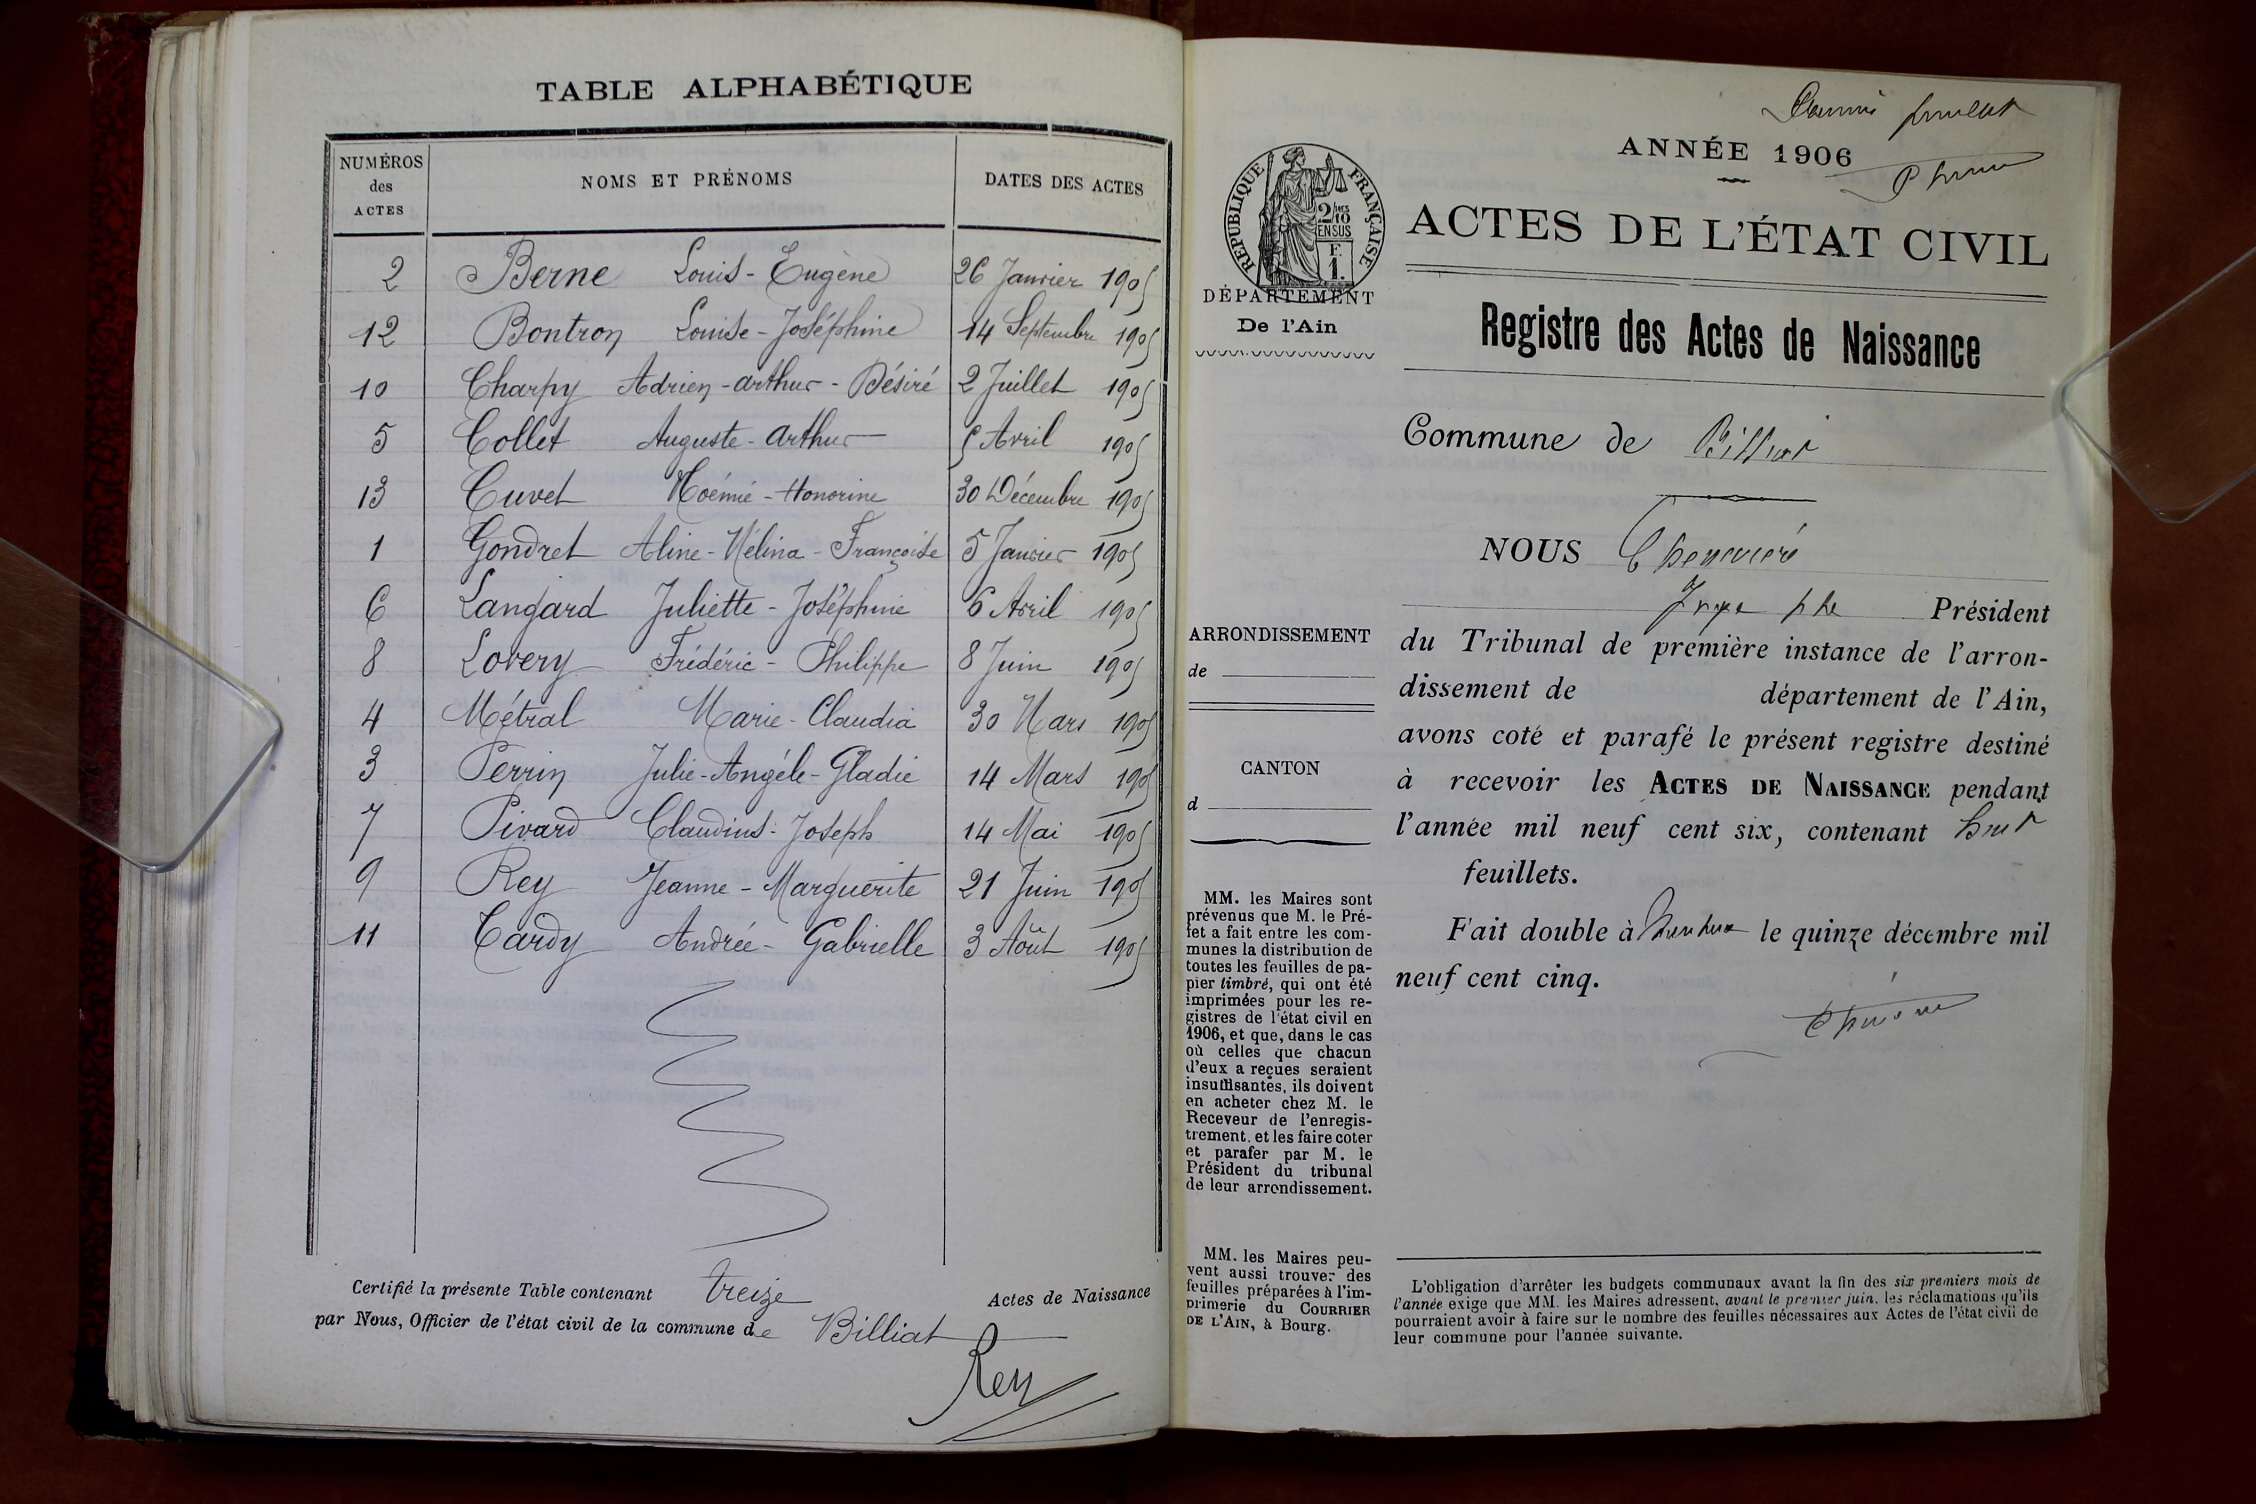 TABLE ALPHABÉTIQUE
NUMÉROS des ACTES NOMS ET PRÉNOMS DATES DES ACTES
2 Berne Louis-Eugène 26 Janvier 1905
12 Bontron Louise-Joséphine 14 Septembre 1905
10 Charpy Adrien-arthur-Désiré 2 Juillet 1905
5 Collet Auguste-arthur 5 Avril 1905
13 Cuvet Noémie-Honorine 30 Décembre 1905
1 Gondret Aline-Mélina-Françoise 5 Janvier 1905
6 Langard Juliette-Joséphine 6 Avril 1905
8 Lovery Frédéric-Philippe 8 Juin 1905
4 Métral Marie-Claudia 30 Mars 1905
3 Perrin Julie-Angèle-Gladie 14 Mars 1905
7 Pivard Claudius-Joseph 14 Mai 1905
9 Rey Jeanne-Marguerite 21 Juin 1905
11 Tardy Andrée-Gabrielle 3 Août 1905
Certifié la présente Table contenant treize Actes de Naissance
par Nous, Officier de l'état civil de la commune de Billiat
Rey
ANNÉE 1906
RÉPUBLIQUE FRANÇAISE
ACTES DE L'ÉTAT CIVIL
DÉPARTEMENT
De l'Ain
Registre des Actes de Naissance
Commune de Billiat
NOUS
Président
ARRONDISSEMENT
de
du Tribunal de première instance de l'arron-
dissement de département de l'Ain,
avons coté et parafé le présent registre destiné
à recevoir les ACTES DE NAISSANCE pendant
l'année mil neuf cent six, contenant huit
feuillets.
Fait double à Nantua le quinze décembre mil
neuf cent cinq.
CANTON
d
MM. les Maires sont
prévenus que M. le Pré-
fet a fait entre les com-
munes la distribution de
toutes les feuilles de pa-
pier timbré, qui ont été
imprimées pour les re-
gistres de l'état civil en
1906, et que, dans le cas
où celles que chacun
d'eux a reçues seraient
insuffisantes, ils doivent
en acheter chez M. le
Receveur de l'enregis-
trement, et les faire coter
et parafer par M. le
Président du tribunal
de leur arrondissement.
MM. les Maires peu-
vent aussi trouver des
feuilles préparées à l'im-
primerie du COURRIER
DE L'AIN, à Bourg.
L'obligation d'arrêter les budgets communaux avant la fin des six premiers mois de
l'année exige que MM. les Maires adressent, avant le premier juin, les réclamations qu'ils
pourraient avoir à faire sur le nombre des feuilles nécessaires aux Actes de l'état civil de
leur commune pour l'année suivante.